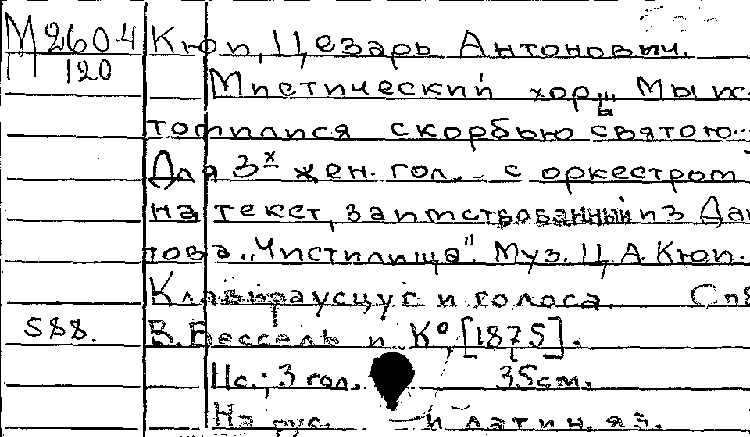 М 2604 Кюи, Цезарь Антонович.
120
Мистический хор „Мы ис-
томилися скорбью святою..."
Для 3х жен. гол. с оркестром
на текст, заимствованный из Дан-
това „Чистилища". Муз. Ц. А. Кюи.
Клавираусцуг и голоса. Спб
588. В. Бессель и К°, [1875].
3 гол. 35см.
На рус. и латин. яз.